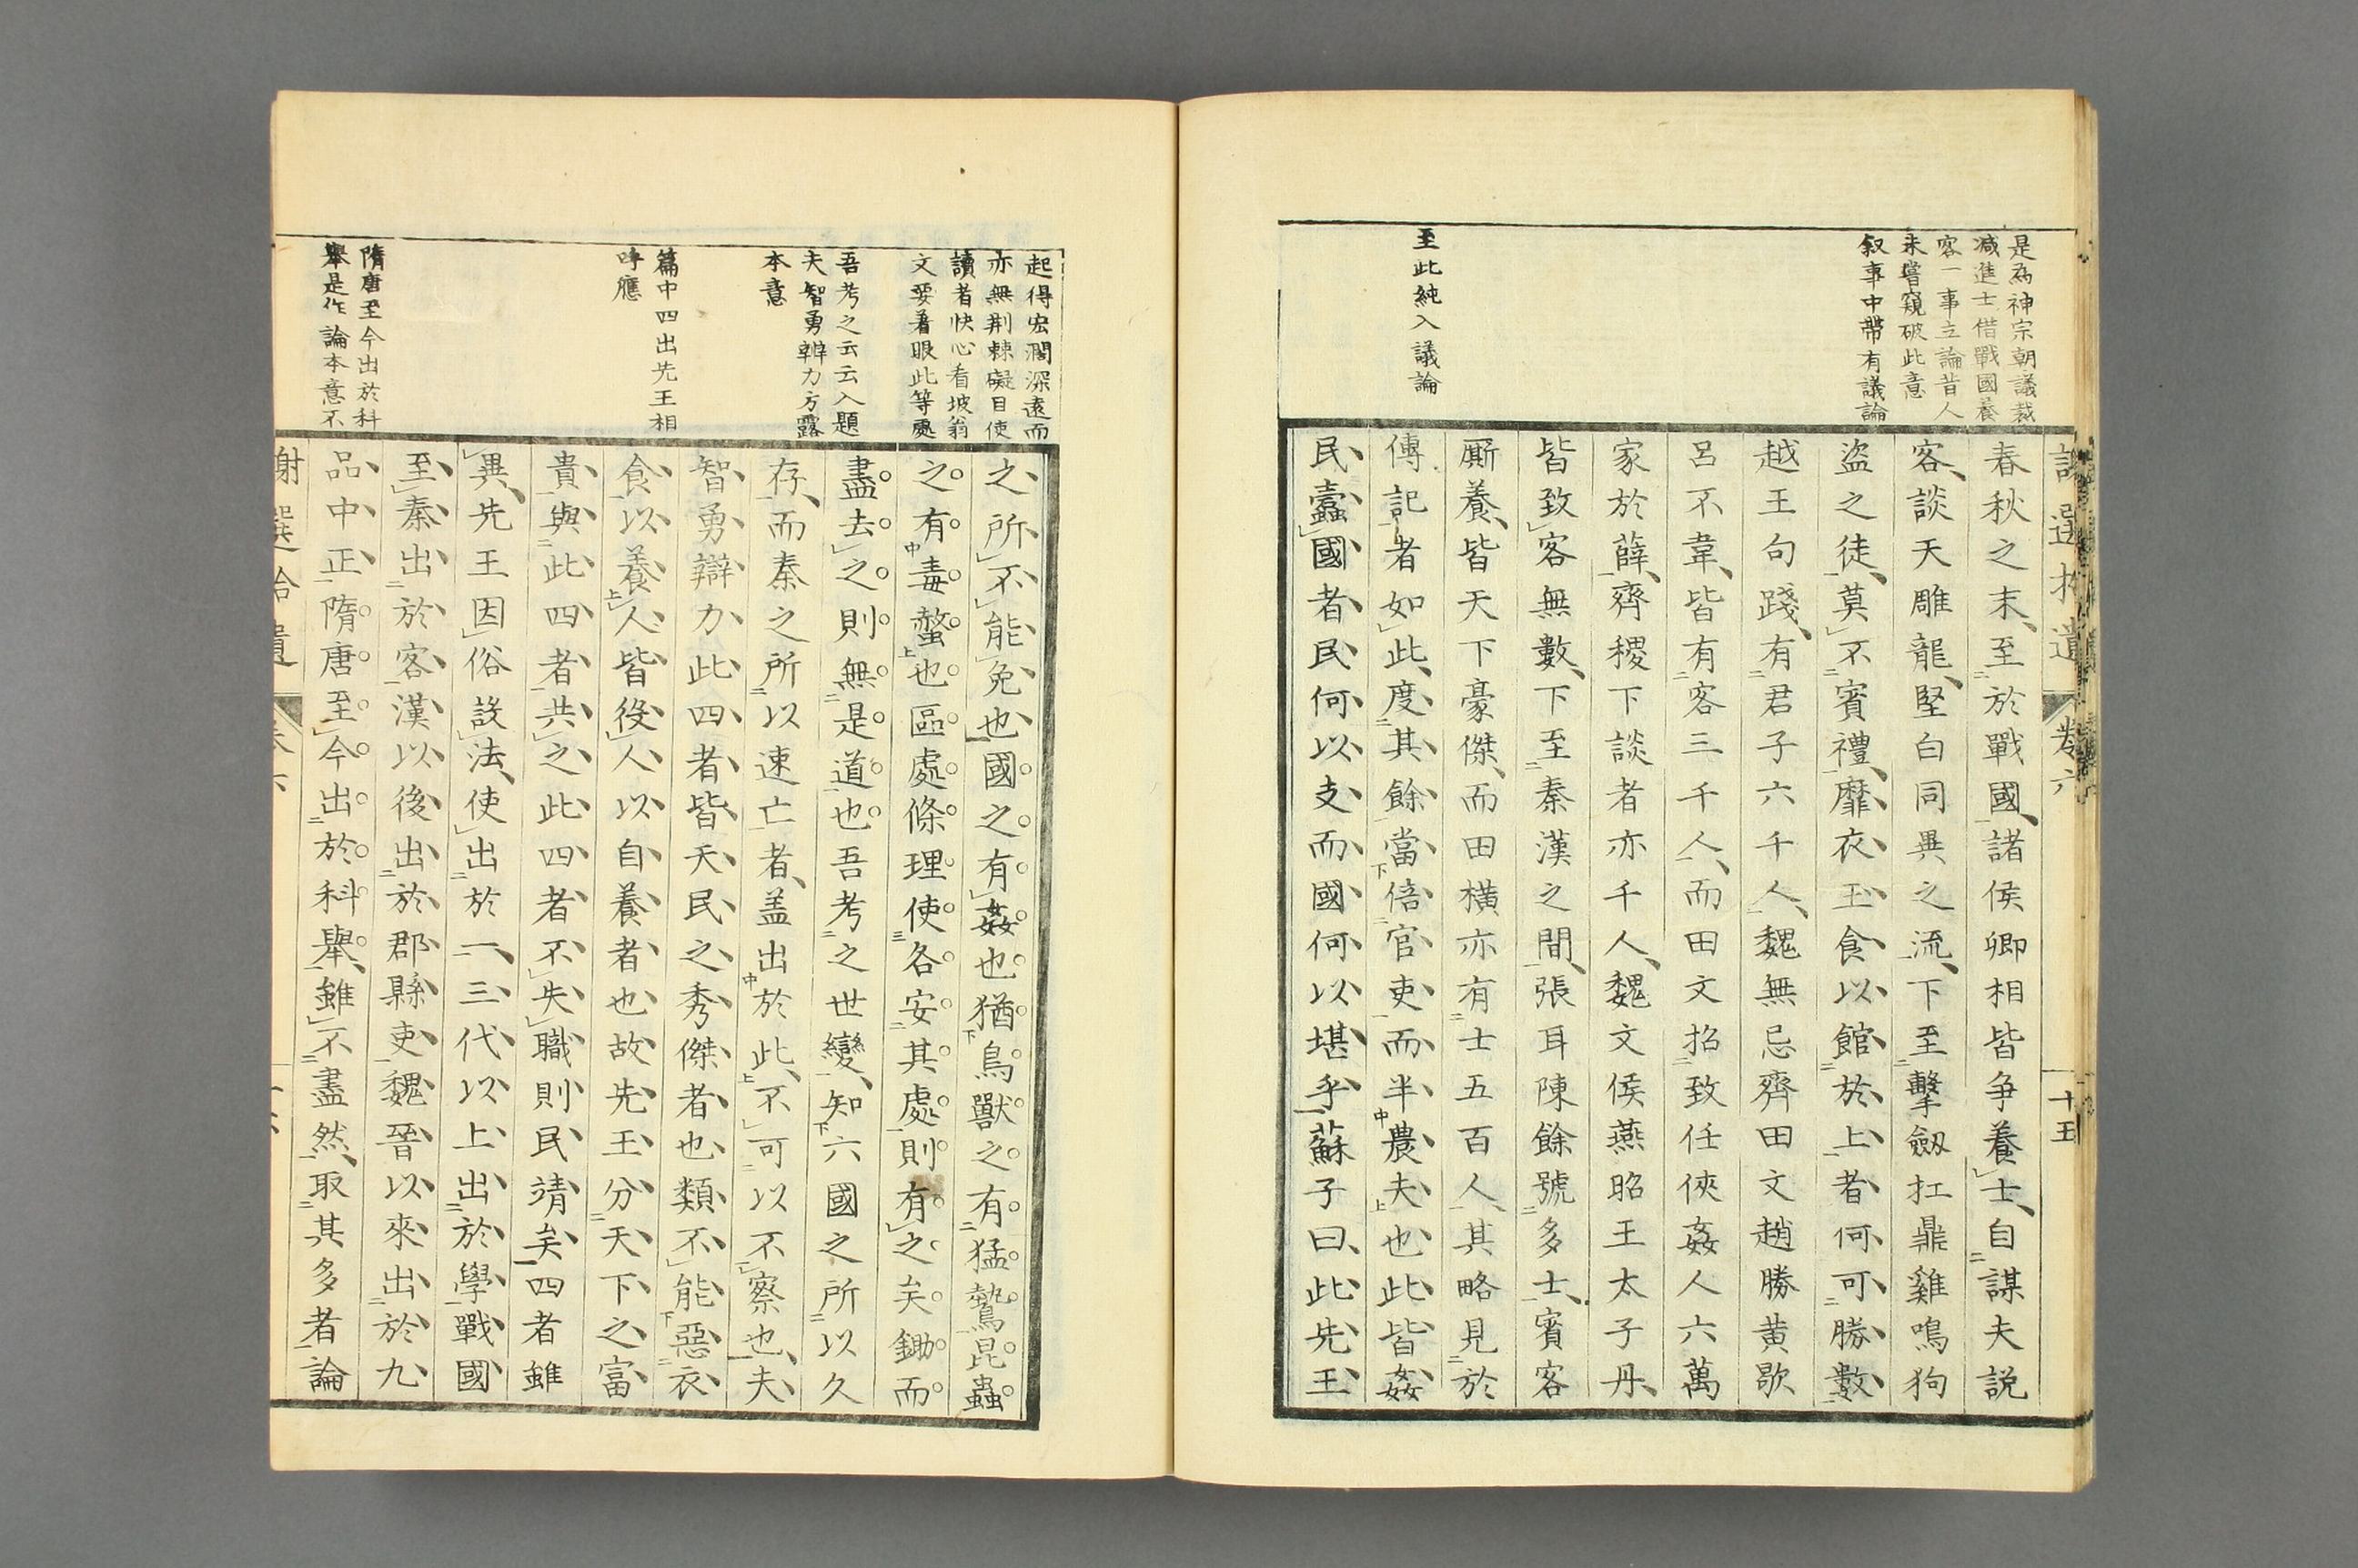 是爲神宗朝議裁
減進士借戰國養
客一事立論昔人
未嘗窺破此意
叙事中帶有議論
至此純入議論
選拾遺
卷六
十五
春秋之末至於戰國諸侯卿相皆争養士自謀夫説
客談天雕龍堅白同異之流下至擊劔扛鼎雞鳴狗
盜之徒莫不賓禮靡衣玉食以館於上者何可勝數
越王句踐有君子六千人魏無忌齊田文趙勝黄歇
呂不韋皆有客三千人而田文招致任俠姦人六萬
家於薛齊稷下談者亦千人魏文侯燕昭王太子丹
皆致客無數下至秦漢之間張耳陳餘號多士賓客
厮養皆天下豪傑而田横亦有士五百人其略見於
傳記者如此度其餘當倍官吏而半農夫也此皆姦
民蠹國者民何以支而國何以堪乎蘇子曰此先王
起得宏濶深遠而
亦無荆棘礙目使
讀者快心看坡翁
文要着眼此等處
吾考之云云入題
夫智勇辨力方露
本意
篇中四出先王相
呼應
隋唐至今出於科
舉是作論本意不
之所不能免也國之有姦也猶鳥獸之有猛鷙昆蟲
之有毒螫也區處條理使各安其處則有之矣鋤而
盡去之則無是道也吾考之世變知六國之所以久
存而秦之所以速亡者盖出於此不可以不察也夫
智勇辯力此四者皆天民之秀傑者也類不能惡衣
食以養人皆役人以自養者也故先王分天下之富
貴與此四者共之此四者不失職則民靖矣四者雖
異先王因俗設法使出於一三代以上出於學戰國
至秦出於客漢以後出於郡縣吏魏晉以來出於九
品中正隋唐至今出於科舉雖不盡然取其多者論
謝選拾遺